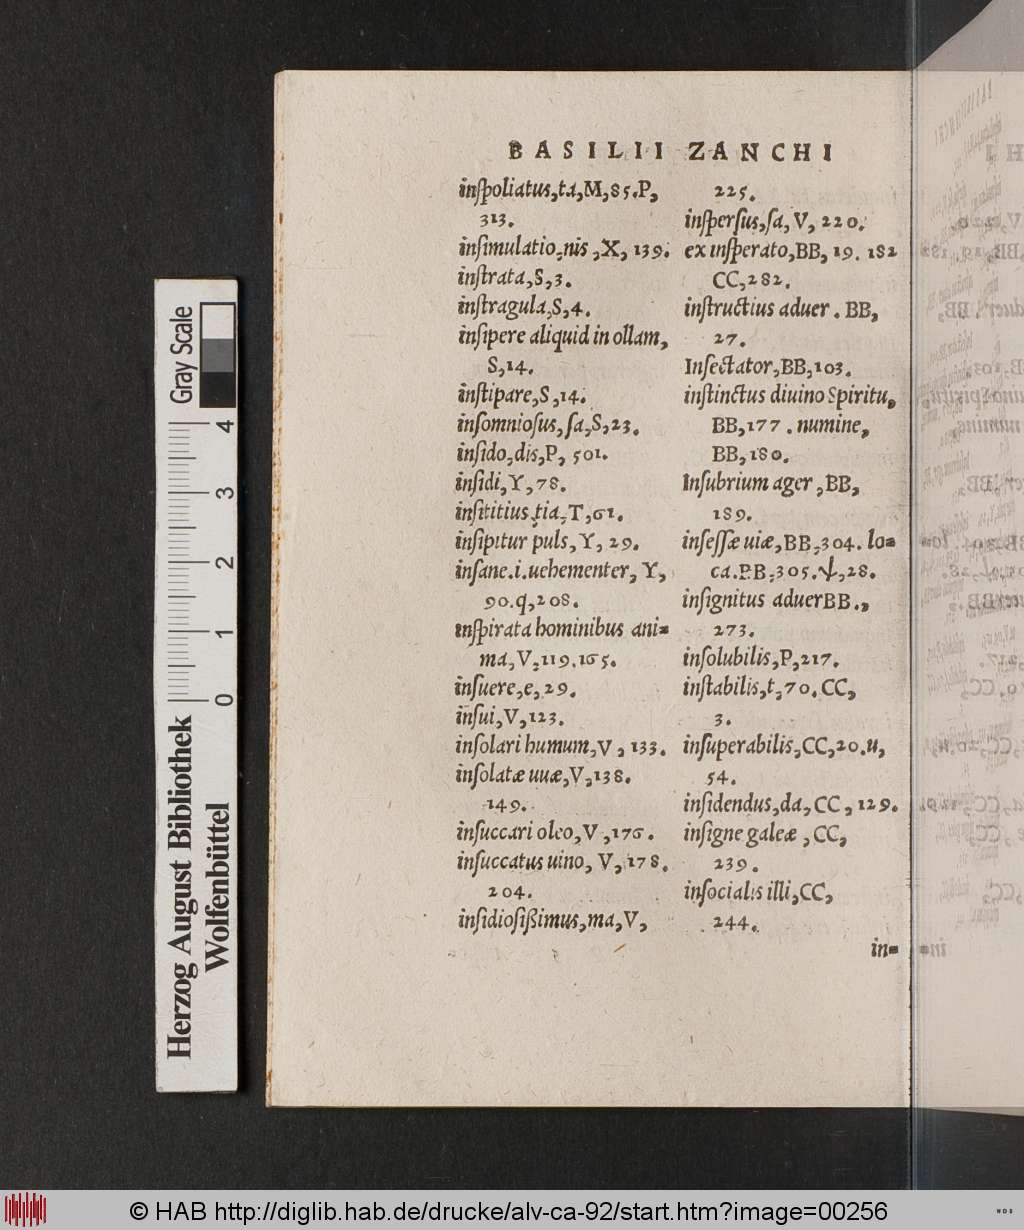 BASILII ZANCHI
inſpoliatus,ta,M,85.P,
313.
inſimulatio,nis,X,139.
inſtrata,S,3.
inſtragula,S,4.
inſipere aliquid in ollam,
S,14.
inſtipare,S,14.
inſomnioſus,ſa,S,23.
inſido,dis,P,501.
inſidi,Y,78.
inſititius,tia,T,61.
inſipitur puls,Y,29.
inſane.i.uehementer,Y,
90.q,208.
inſpirata hominibus ani=
ma,V,119.165.
inſuere,e,29.
inſui,V,123.
inſolari humum,V,133.
inſolatæ uuæ,V,138.
149.
inſuccari oleo,V,176.
inſuccatus uino,V,178.
204.
inſidioſißimus,ma,V,
225.
inſperſus,ſa,V,220.
ex inſperato,BB,19.182
CC,282.
inſtructius aduer.BB,
27.
Inſectator,BB,103.
inſtinctus diuino Spiritu,
BB,177.numine,
BB,180.
Inſubrium ager,BB,
189.
inſeſſæ uiæ,BB,304.lo=
ca.PB,305.ψ,28.
inſignitus aduerBB.,
273.
inſolubilis,P,217.
inſtabilis,t,70.CC,
3.
inſuperabilis,CC,20.u,
54.
inſidendus,da,CC,129.
inſigne galeæ,CC,
239.
inſocialis illi,CC,
244.
in=
Gray Scale
4
3
2
1
0
Herzog August Bibliothek
Wolfenbüttel
© HAB http://diglib.hab.de/drucke/alv-ca-92/start.htm?image=00256